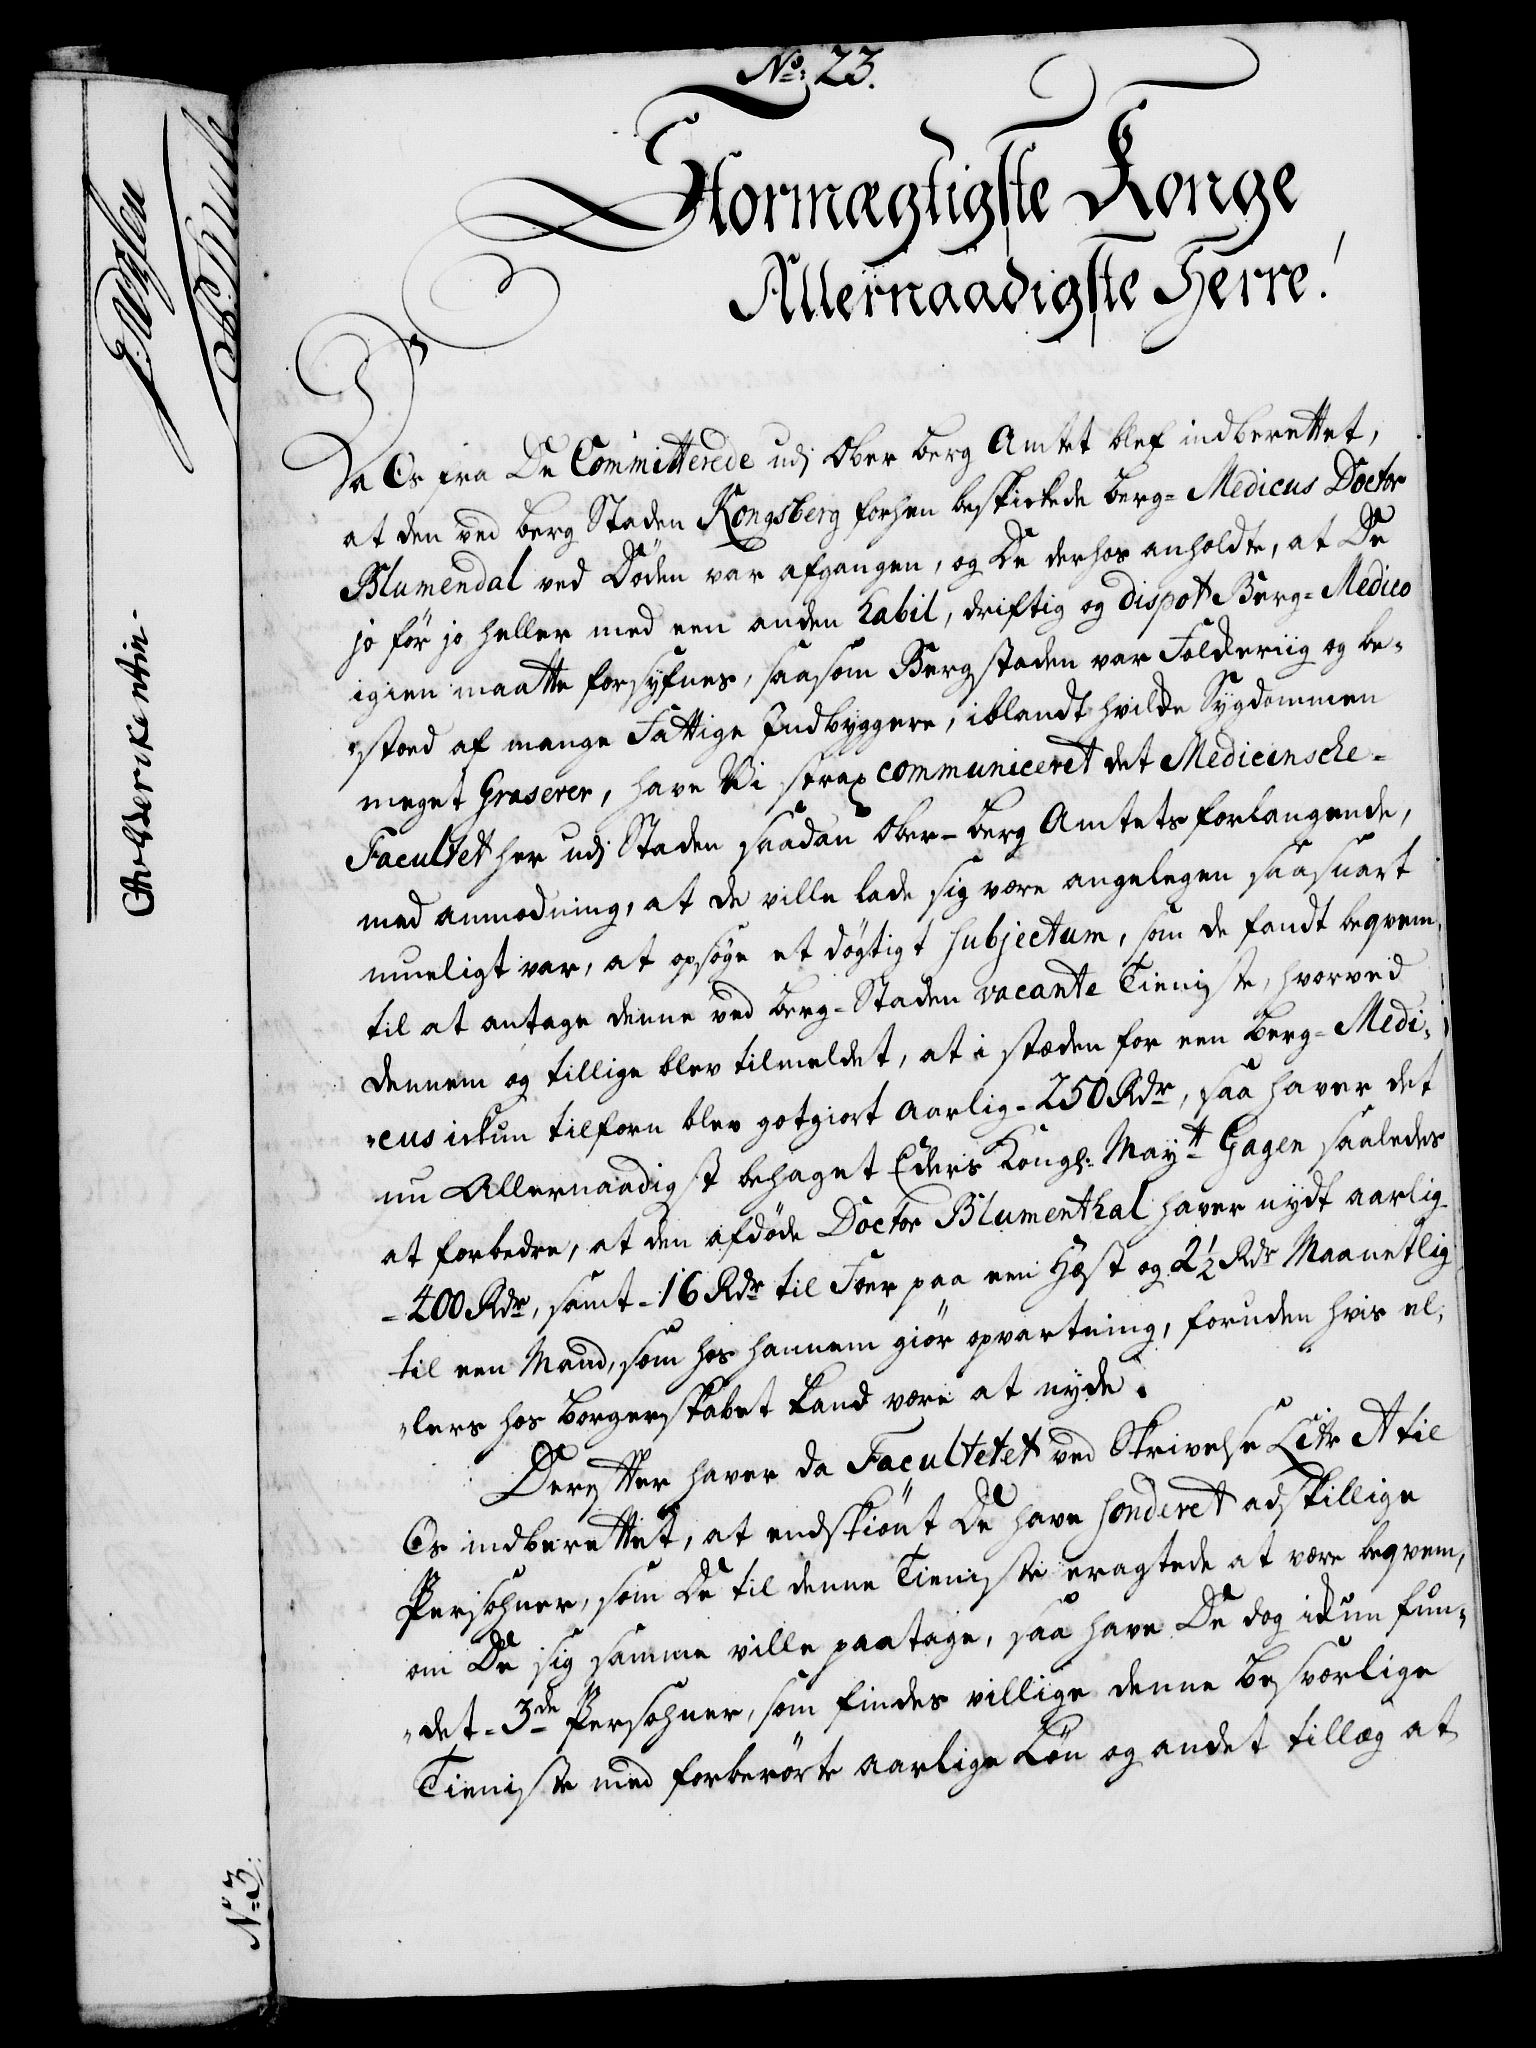 No: 23.
Stormægtigste Konge
Allernaadigste Herre!
Da Os fra De Committerede udi Ober Berg Amtet blef indberettet,
at den ved Berg Staden Kongsberg forhen beskikede Berg-Medicus Doctor
Blumendal ved Döden var afgangen, og De derhos anholdte, at De
jo för jo heller med een anden habil, driftig og dispot Berg-Medico
igien maatte forsyfnes, saasom Bergstaden var Folkeriig og be-
stoed af mange Fattige Indbyggere, iblandt hvilke Sygdommen
meget Graserer, have Vi strax communiceret det Medicinsche-
Facultet her udi Staden saadan Ober-Berg Amtets forlangende,
med anmodning, at de ville lade sig være angelegen saasnart
mueligt var, at opsöge et dögtigt Subjectum, som de fandt beqvem
til at antage denne ved Berg-Staden vacante Tieniste, hvorved
dennem og tillige blev tilmeldet, at i stæden for een Berg-Medi-
cus ickun tilforn blev gotgiort aarlig-250 Rdr, saa haver det
nu Allernaadigst behaget Eders Kongl: Maytt Gagen saaledes
at forbedre, at den afdöde Doctor Blumenthal haver nydt aarlig
-400 Rdr, samt-16 Rdr til Foer paa een Hæst og 2½ Rdr Maanetlig
til een Mand, som hos hannem giör opvartning, foruden hvis el-
lers hos Borgerskabet kand være at nyde.
Derefter haver da Facultetet ved Skrivelse Litr A til
Os indberettet, at endskiönt De have Sonderet adskillige
Persohner, som De til denne Tieniste eragtede at være beqvem,
om De sig samme ville paatage, saa have De dog ickun fun-
det-3de Persohner, som findes villige denne besværlige
Tieniste med forberörte aarlige Lön og andet tillæg at
Berckentin.
No 3.